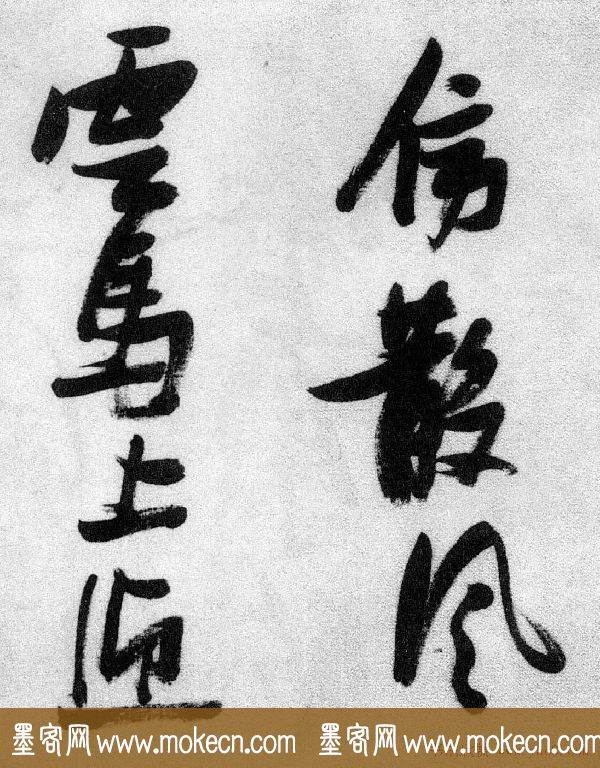 傍散风
雲馬上
墨客网 www.mokecn.com 墨客网 www.mokecn.com